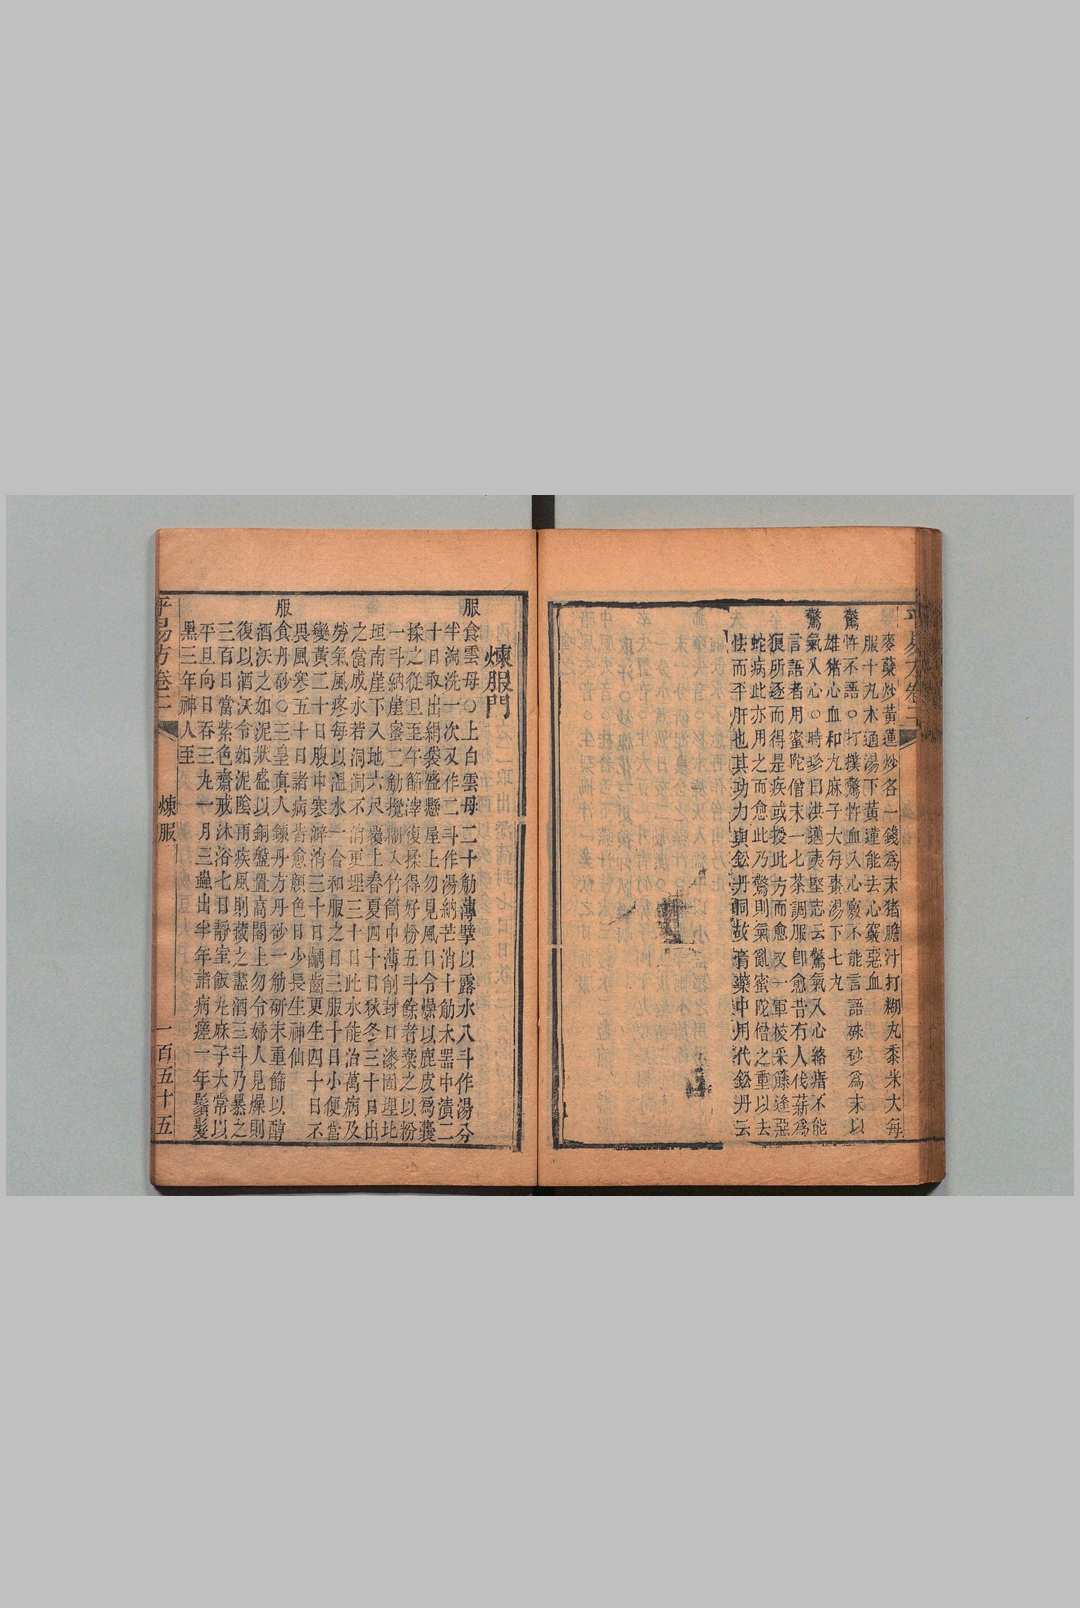 麥蘖炒黃蓮炒各一錢爲末猪膽汁打糊丸黍米大每
服十九木通湯下黃蓮能去心竅惡血
驚忤不語○打撲驚忤血入心竅不能言語硃砂爲末以
雄猪心血和丸麻子大每棗湯下七九
驚氣入心○時珍曰洪邁夷堅志云驚氣入心絡瘖不能
言語者用蜜陀僧末一七茶調服卽愈昔有人伐薪爲
狼所逐而得是疾或授此方而愈又一軍校采藤逢惡
蛇病此亦用之而愈此乃驚則氣亂蜜陀僧之重以去
怯而平肝也其功力與鉛丹同故膏藥中用代鉛丹云
煉服門
服食雲母○上白雲母二十觔薄擘以露水八斗作湯分
半淘洗一次又作二斗作湯納芒消十觔木器中漬二
十日取出絹袋盛懸屋上勿見風日令燥以鹿皮爲囊
揉之從旦至午篩滓復揉得好粉五斗餘者棄之以粉
一斗納崖蜜二觔攪糊入竹筒中薄削封口漆固埋北
垣南崖下入地六尺覆土春夏四十日秋冬三十日出
之當成水若洞洞不消更埋三十日此水能治萬病及
勞氣風疼每以温水一合和服之日三服十日小便當
變黃二十日腹中寒澼消三十日齲齒更生四十日不
畏風寒五十日諸病皆愈顏色日少長生神仙
服食丹砂○三皇眞人鍊丹方丹砂一觔硏末重篩以醇
酒沃之如泥狀盛以銅盤置高閣上勿令婦人見燥則
復以酒沃令如泥陰雨疾風則藏之盡酒三斗乃暴之
三百日當紫色齋戒沐浴七日靜室飯丸麻子大常以
平旦向日吞三九一月三蟲出半年諸病瘥一年鬚髮
黑三年神人至
平易方卷三
煉服
一百五十五